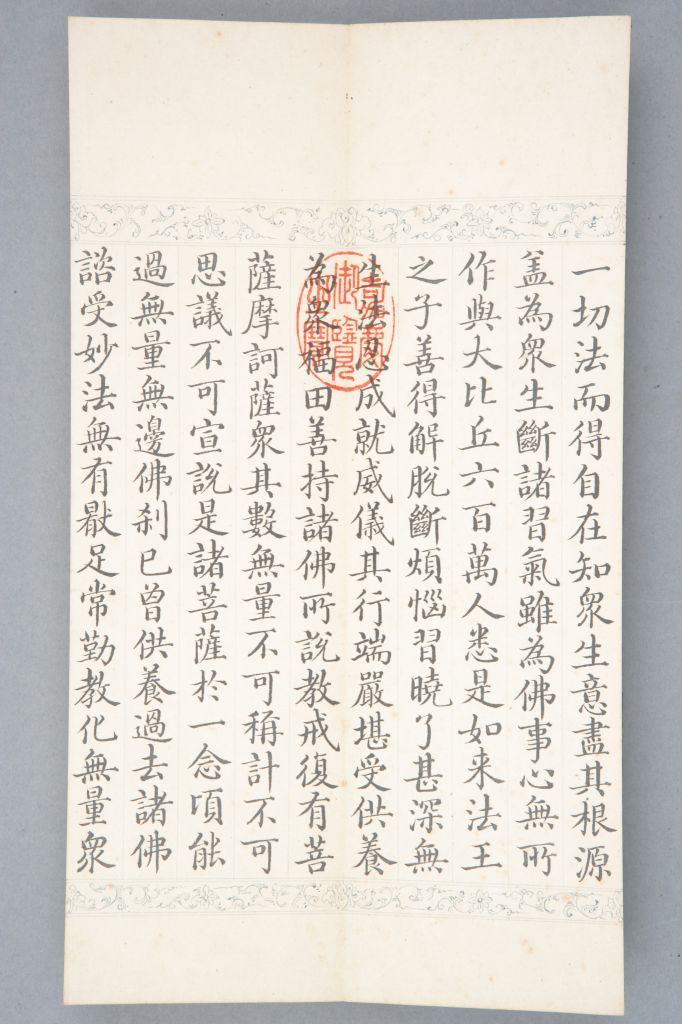 一切法而得自在知衆生意盡其根源
盖為衆生斷諸習氣雖為佛事心無所
作與大比丘六百萬人悉是如来法王
之子善得解脫斷煩惱習曉了甚深無
生法忍成就威儀其行端嚴堪受供養
為衆福田善持諸佛所說教戒復有菩
薩摩訶薩衆其數無量不可稱計不可
思議不可宣說是諸菩薩於一念頃能
過無量無邊佛刹已曾供養過去諸佛
諮受妙法無有猒足常勤教化無量衆
嘉慶
御覽
之寶